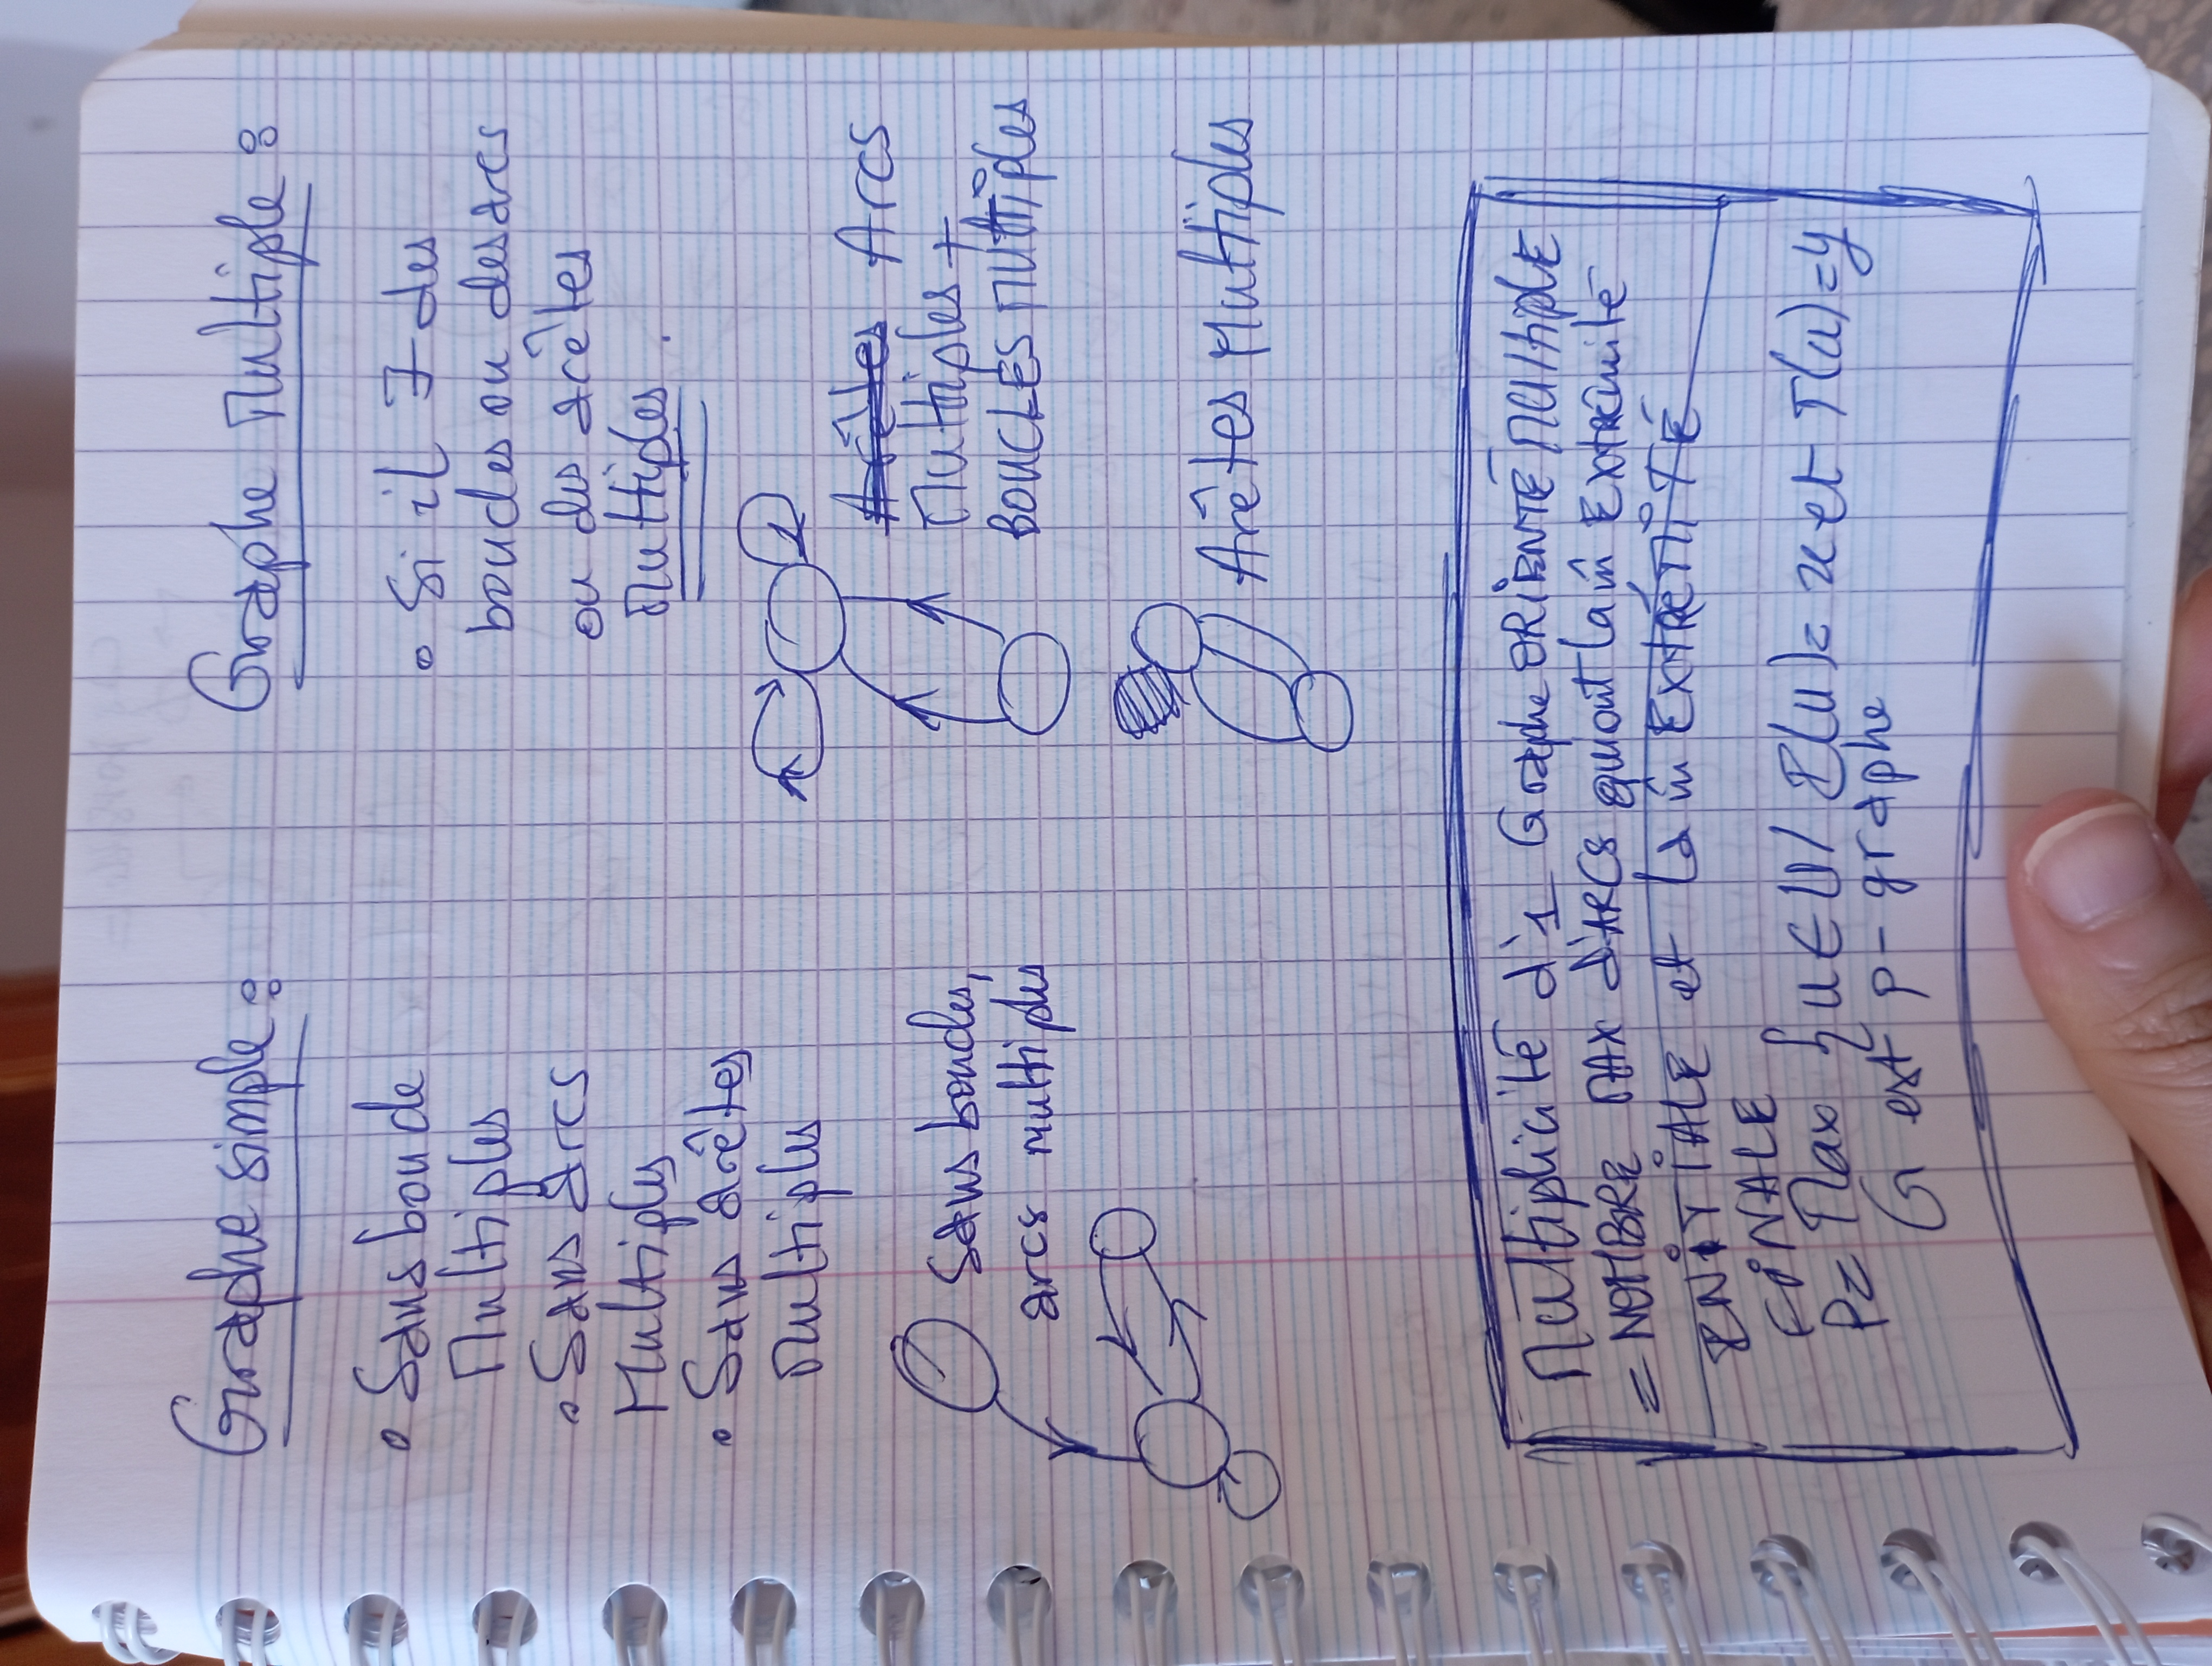 Graphe simple :
• Sans boucle
Multiples
• Sans arcs
Multiples
• Sans arêtes
multiples
Sans boucles,
arcs multiples
Graphe Multiple :
• Si il ∃ des
boucles ou des arcs
ou des arêtes
multiples.
Arêtes Arcs
Multiples +
BOUCLES Multiples
Arêtes Multiples
Multiplicité d'1 Graphe ORIENTÉ MultiplE
= NOMBRE MAX d'ARCS qui ont la m̂ Extrémité
INITIALE et la m̂ EXTRÉMITÉ
FINALE
P = Max {u ∈ U / I(u) = x et T(u) = y
G est p-graphe